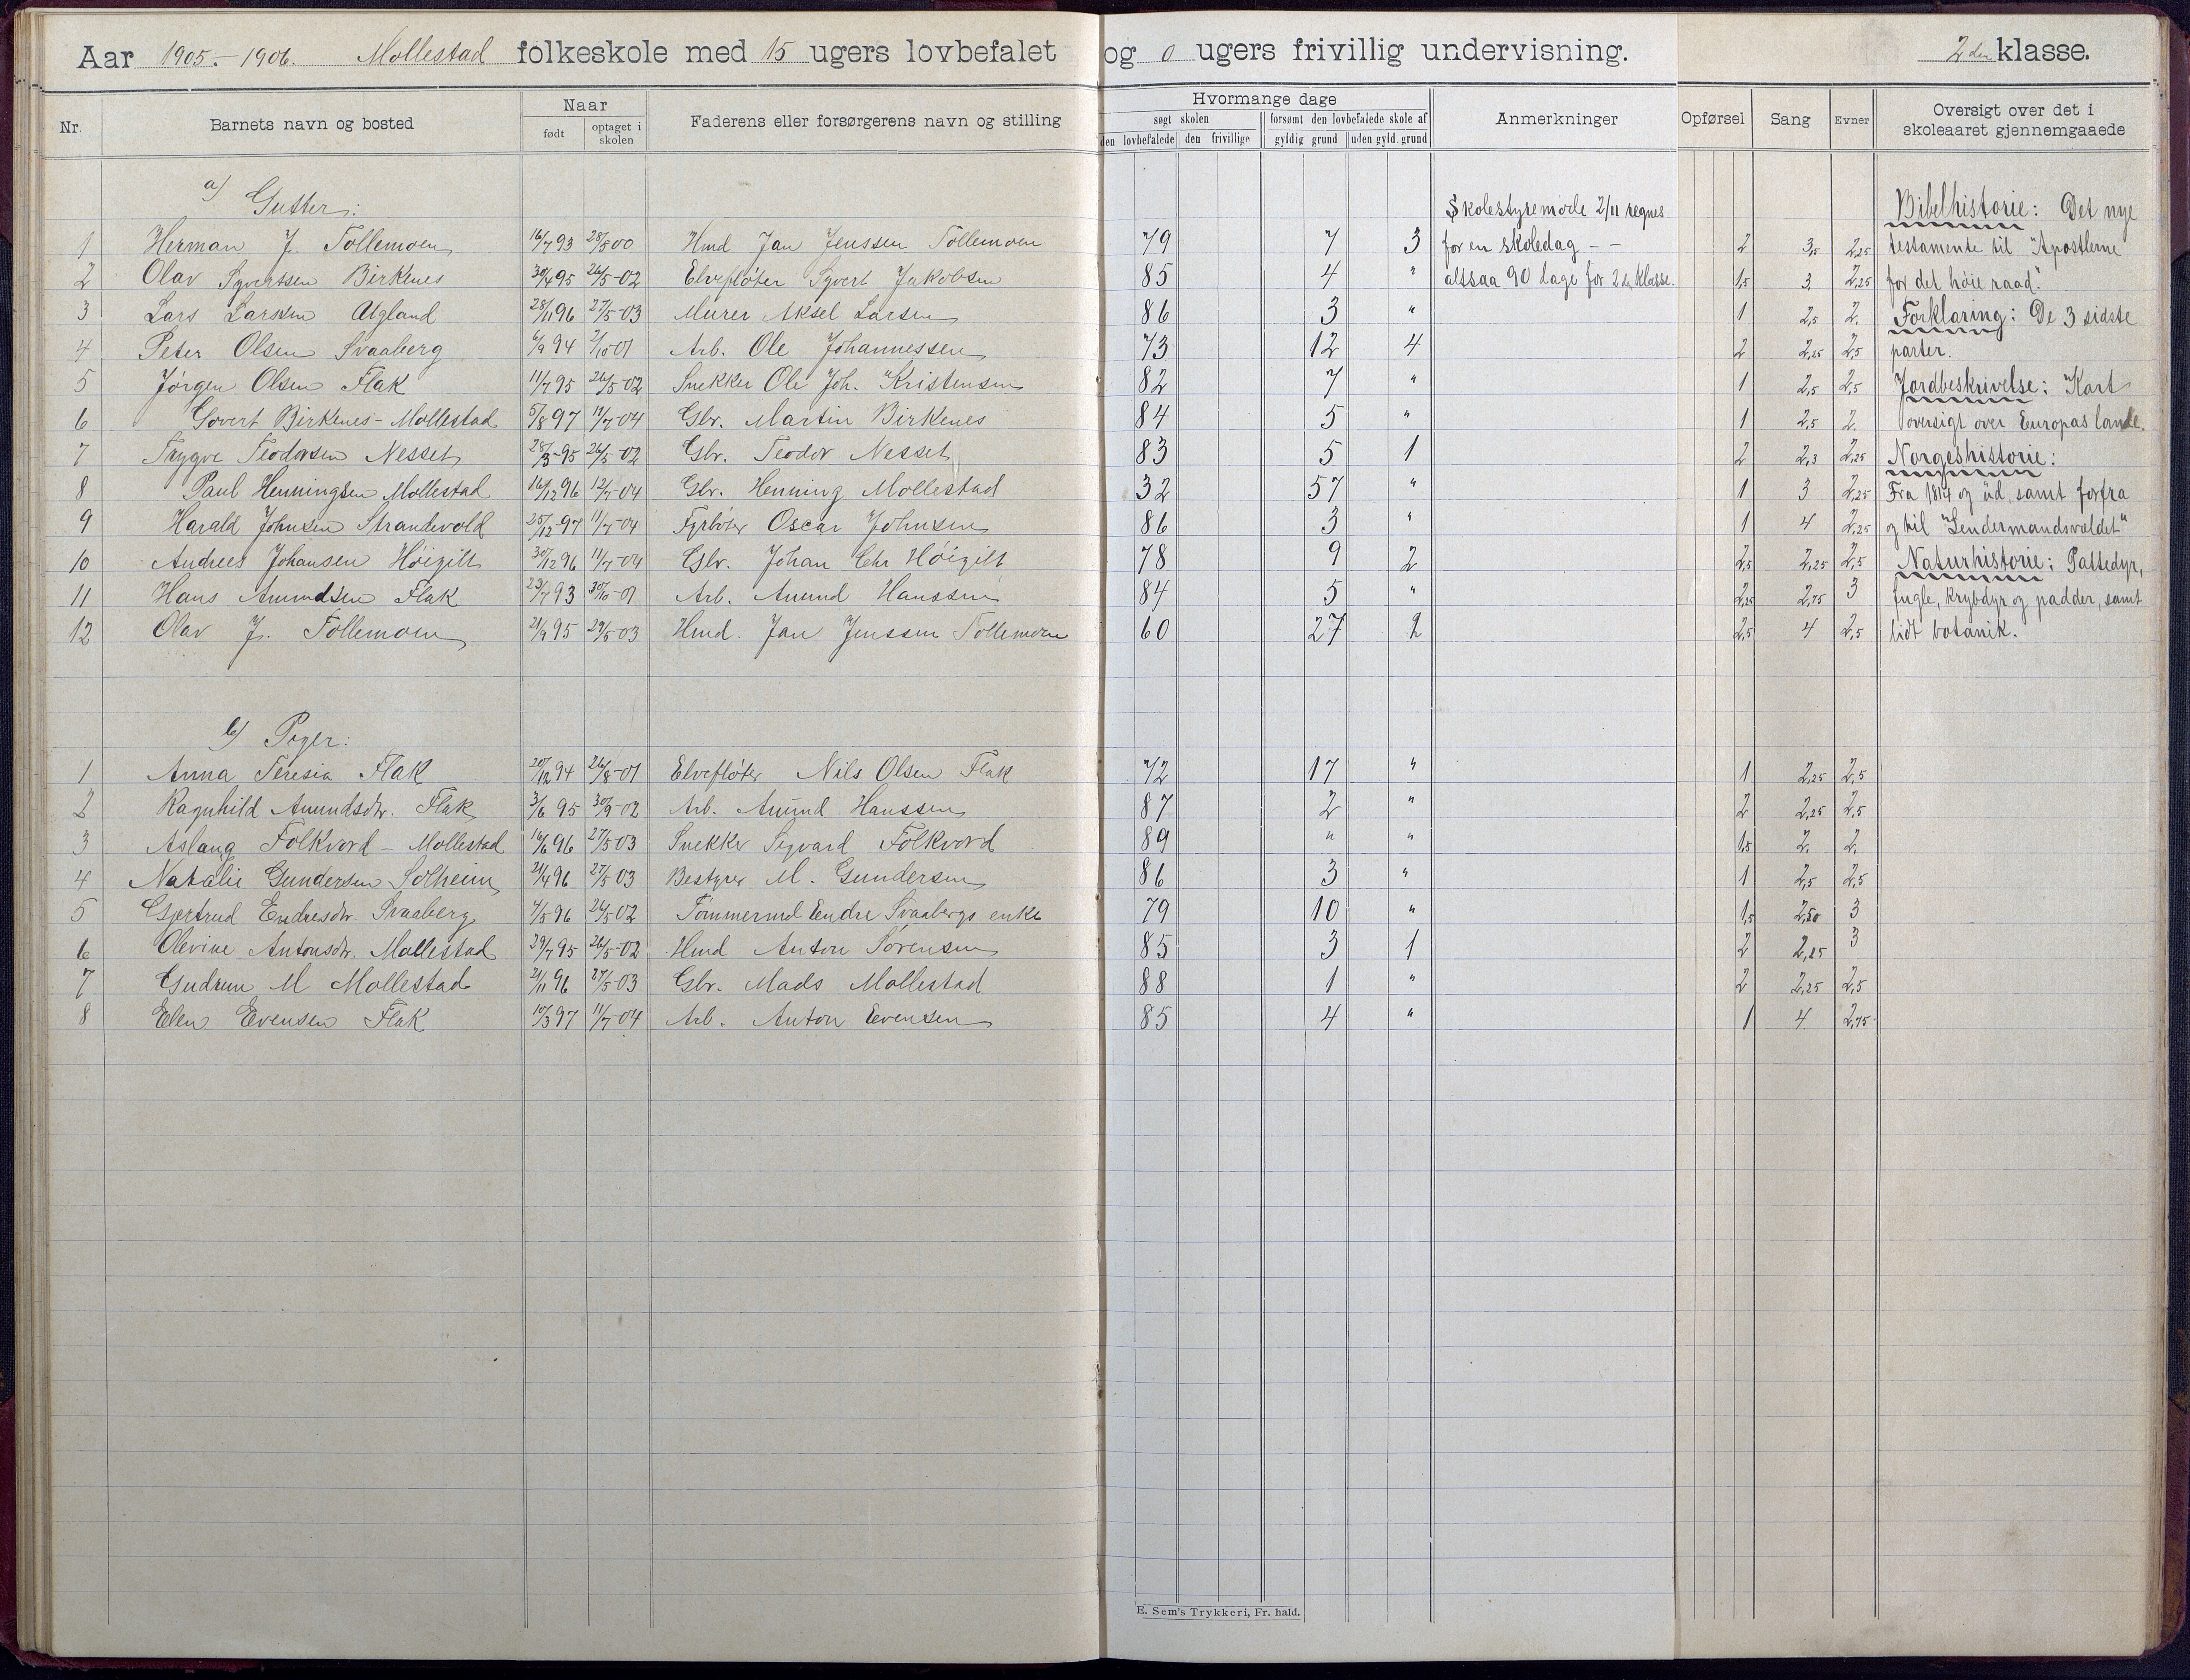 Aar 1905.-1906. Mollestad folkeskole med 15 ugers lovbefalet og 0 ugers frivillig undervisning. 2den klasse.
Nr. Barnets navn og bosted Naar født optaget i skolen Faderens eller forsørgerens navn og stilling Hvormange dage søgt skolen den lovbefalede den frivillige forsømt den lovbefalede skole af gyldig grund uden gyld. grund Anmerkninger Opførsel Sang Evner Oversigt over det i skoleaaret gjennemgaaede
a) Gutter: Skolestyremøde 2/11 regnes Bibelhistorie: Det nye
1 Herman J. Tollemoen 16/7 93 28/5 00 Hmd Jan Jenssen Tollemoen 79 7 3 for en skoledag - - 2 3,5 2,25 testamente til "Apostlerne
2 Olav Syvertsen Birkenes 30/4 95 26/5-02 Elvefløter Syvert Jakobsen 85 4 " altsaa 90 dage for 2den klasse. 1,5 3 2,25 for det høie raad."
3 Lars Larssen Ugland 28/11 96 27/5-03 Murer Aksel Larsen 86 3 " 1 2,5 2. Forklaring: De 3 sidste
4 Peter Olsen Svaaberg 6/9 94 2/10 01 Arb. Ole Johannessen 73 12 4 2 2,25 2,5 parter.
5 Jørgen Olsen Flak 11/7 95 26/5-02 Snekker Ole Joh. Kristensen 82 7 " 1 2,5 2,5 Jordbeskrivelse: Kart
6 Govert Birkenes-Mollestad 5/8 97 11/7-04 Gbr. Martin Birkenes 84 5 " 1 2,5 2. oversigt over Europas lande.
7 Trygve Teodorsen Nesset 28/3-95 26/5-02 Gbr. Teodor Nesset 83 5 1 2 2,3 2,25 Norgeshistorie:
8 Paul Henningsen Mollestad 16/12 96 12/7-04 Gbr. Henning Mollestad 32 57 " 1 3 2,25 Fra 1814 og ud, samt forfra
9 Harald Johnsen Strandvold 25/12-97 11/7-04 Fyrbøter Oscar Johnsen 86 3 " 1 4 2,25 og til "Lendermandsvældet"
10 Andrees Johansen Høigilt 30/12 96 11/7-04 Gbr. Johan Chr Høigilt 78 9 2 2,5 2,25 2,5 Naturhistorie: Pattedyr,
11 Hans Amundsen Flak 23/7 93 30/10-01 Arb. Amund Hanssen 84 5 " 2,25 2,75 3 fugle, krybdyr og padder, samt
12 Olav J. Tollemoen 21/9 95 29/5-03 Hmd. Jan Jenssen Tollemoen 60 27 2 2,5 4 2,5 lidt botanik.
b) Piger:
1 Anna Teresia Flak 20/12 94 26/8-01 Elvefløter Nils Olsen Flak 72 17 " 1 2,25 2,5
2 Ragnhild Amundsdtr. Flak 3/6 95 30/9-02 Arb. Amund Hanssen 87 2 " 2 2,25 2,5
3 Aslaug Folkvord - Mollestad 16/6 96 27/5 03 Snekker Sigvard Folkvord 89 " " 1,5 2. 2.
4 Natalie Gundersen Solheim 21/4 96 27/5 03 Bestyrer M. Gundersen 86 3 " 1 2,5 2,5
5 Gjertrud Endresdtr. Svaaberg 4/5 96 26/5 02 Tømmermd Endre Svaabergs enke 79 10 " 1,5 2,50 3
6 Olevine Antonsdtr. Mollestad 29/7 95 26/5-02 Hmd Anton Sørensen 85 3 1 2 2,25 3
7 Gudrun M Mollestad 21/11 96 27/5-03 Gbr. Mads Mollestad 88 1 " 2 2,25 2,5
8 Elen Evensen Flak 10/3 97 11/7-04 Arb. Anton Evensen 85 4 " 1 4 2,75
E. Sem's Trykkeri, Fr. hald.